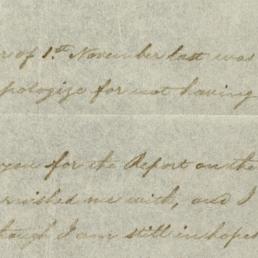 r of 1.st November last was
apologize for not having
you for the Report on the
urnished me with, and I
though I am still in hope